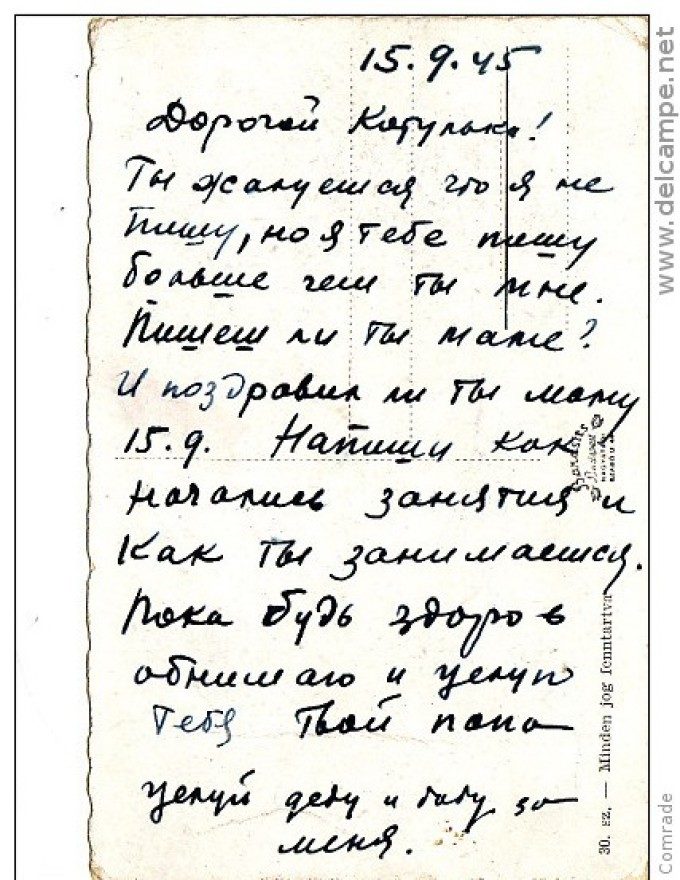 15.9.45
Дорогой Котулька!
Ты жалуешся что я не
пишу, но я тебе пишу
больше чем ты мне.
Пишеш ли ты маме?
И поздравил ли ты маму
15.9. Напиши как
начались занятия и
Как ты занимаешся.
Пока будь здоров
обнимаю и целую
тебя твой папа
целуй деду и бабу за
меня.
30. sz. — Minden jog fenntartva
www.delcampe.net
Comrade